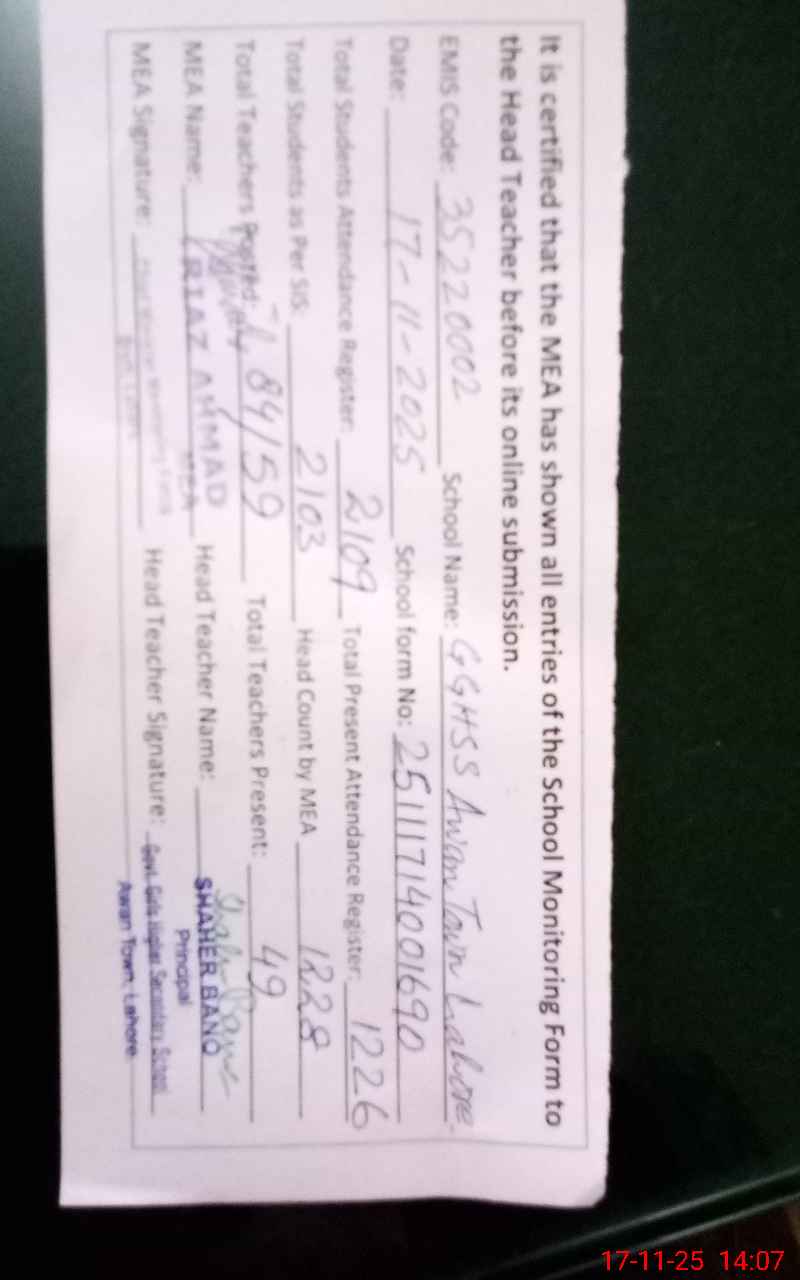 It is certified that the MEA has shown all entries of the School Monitoring Form to
the Head Teacher before its online submission.
EMIS Code: 35220002 School Name: GGHSS Awan Town Lahore.
Date: 17-11-2025 School form No: 2511171400169​0
Total Students Attendance Register: 2109 Total Present Attendance Register: 1226
Total Students as Per SIS: 2103 Head Count by MEA 1228
Total Teachers Posted: 84/59 Total Teachers Present: 49
MEA Name: RIAZ AHMAD Head Teacher Name: SHAHER BANO
MEA Principal
MEA Signature: Head Teacher Signature: Govt. Girls Higher Secondary School
Awan Town, Lahore
17-11-25 14:07